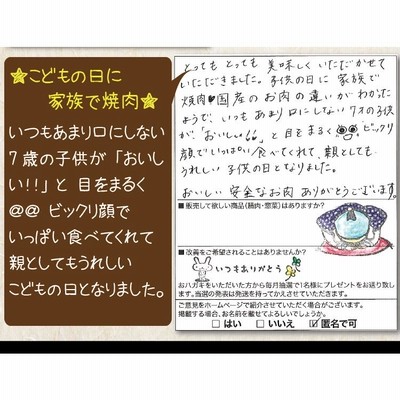 ★こどもの日に
家族で焼肉★
いつもあまり口にしない
7歳の子供が「おいし
い!!」と 目をまるく
@@ ビックリ顔で
いっぱい食べてくれて
親としてもうれしい
こどもの日となりました。
とっても とっても 美味しく いただかせて
いただきました。子供の日に 家族で
焼肉♥国産の お肉の違いがわかった
ようで、いつも あまり口にしない 7才の子供
が「おいしい!!」と 目をまるく ビックリ
顔でいっぱい食べてくれて、親としても
うれしい 子供の日となりました。
おいしい 安全なお肉 ありがとうございます。
■販売して欲しい商品(精肉・惣菜)はありますか?
■改善をご希望されることはありますか?
いつもありがとう
おハガキをいただいた方から毎月抽選で1名様にプレゼントをお送り致します。当選の発表は発送を持ってかえさせていただきます。
ご意見をホームページで紹介させていただく場合がございます。
掲載する場合、お名前を載せてよろしいでしょうか。
□ はい □ いいえ ☑ 匿名で可